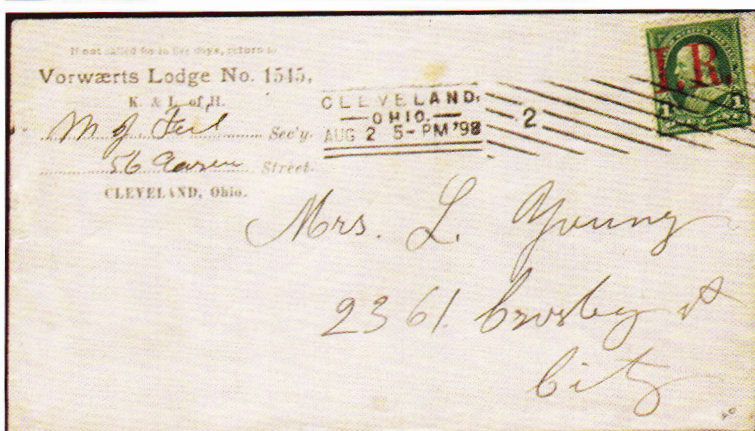 If not called for in five days, return to
Vorwærts Lodge No. 1545,
K. & L. of H.
M J Feil Sec'y.
56 Street.
CLEVELAND, Ohio.
CLEVELAND,
OHIO.
AUG 2 5-PM '98
2
I.R.
1 1
Mrs. L. Young
2361 Crosby st
City